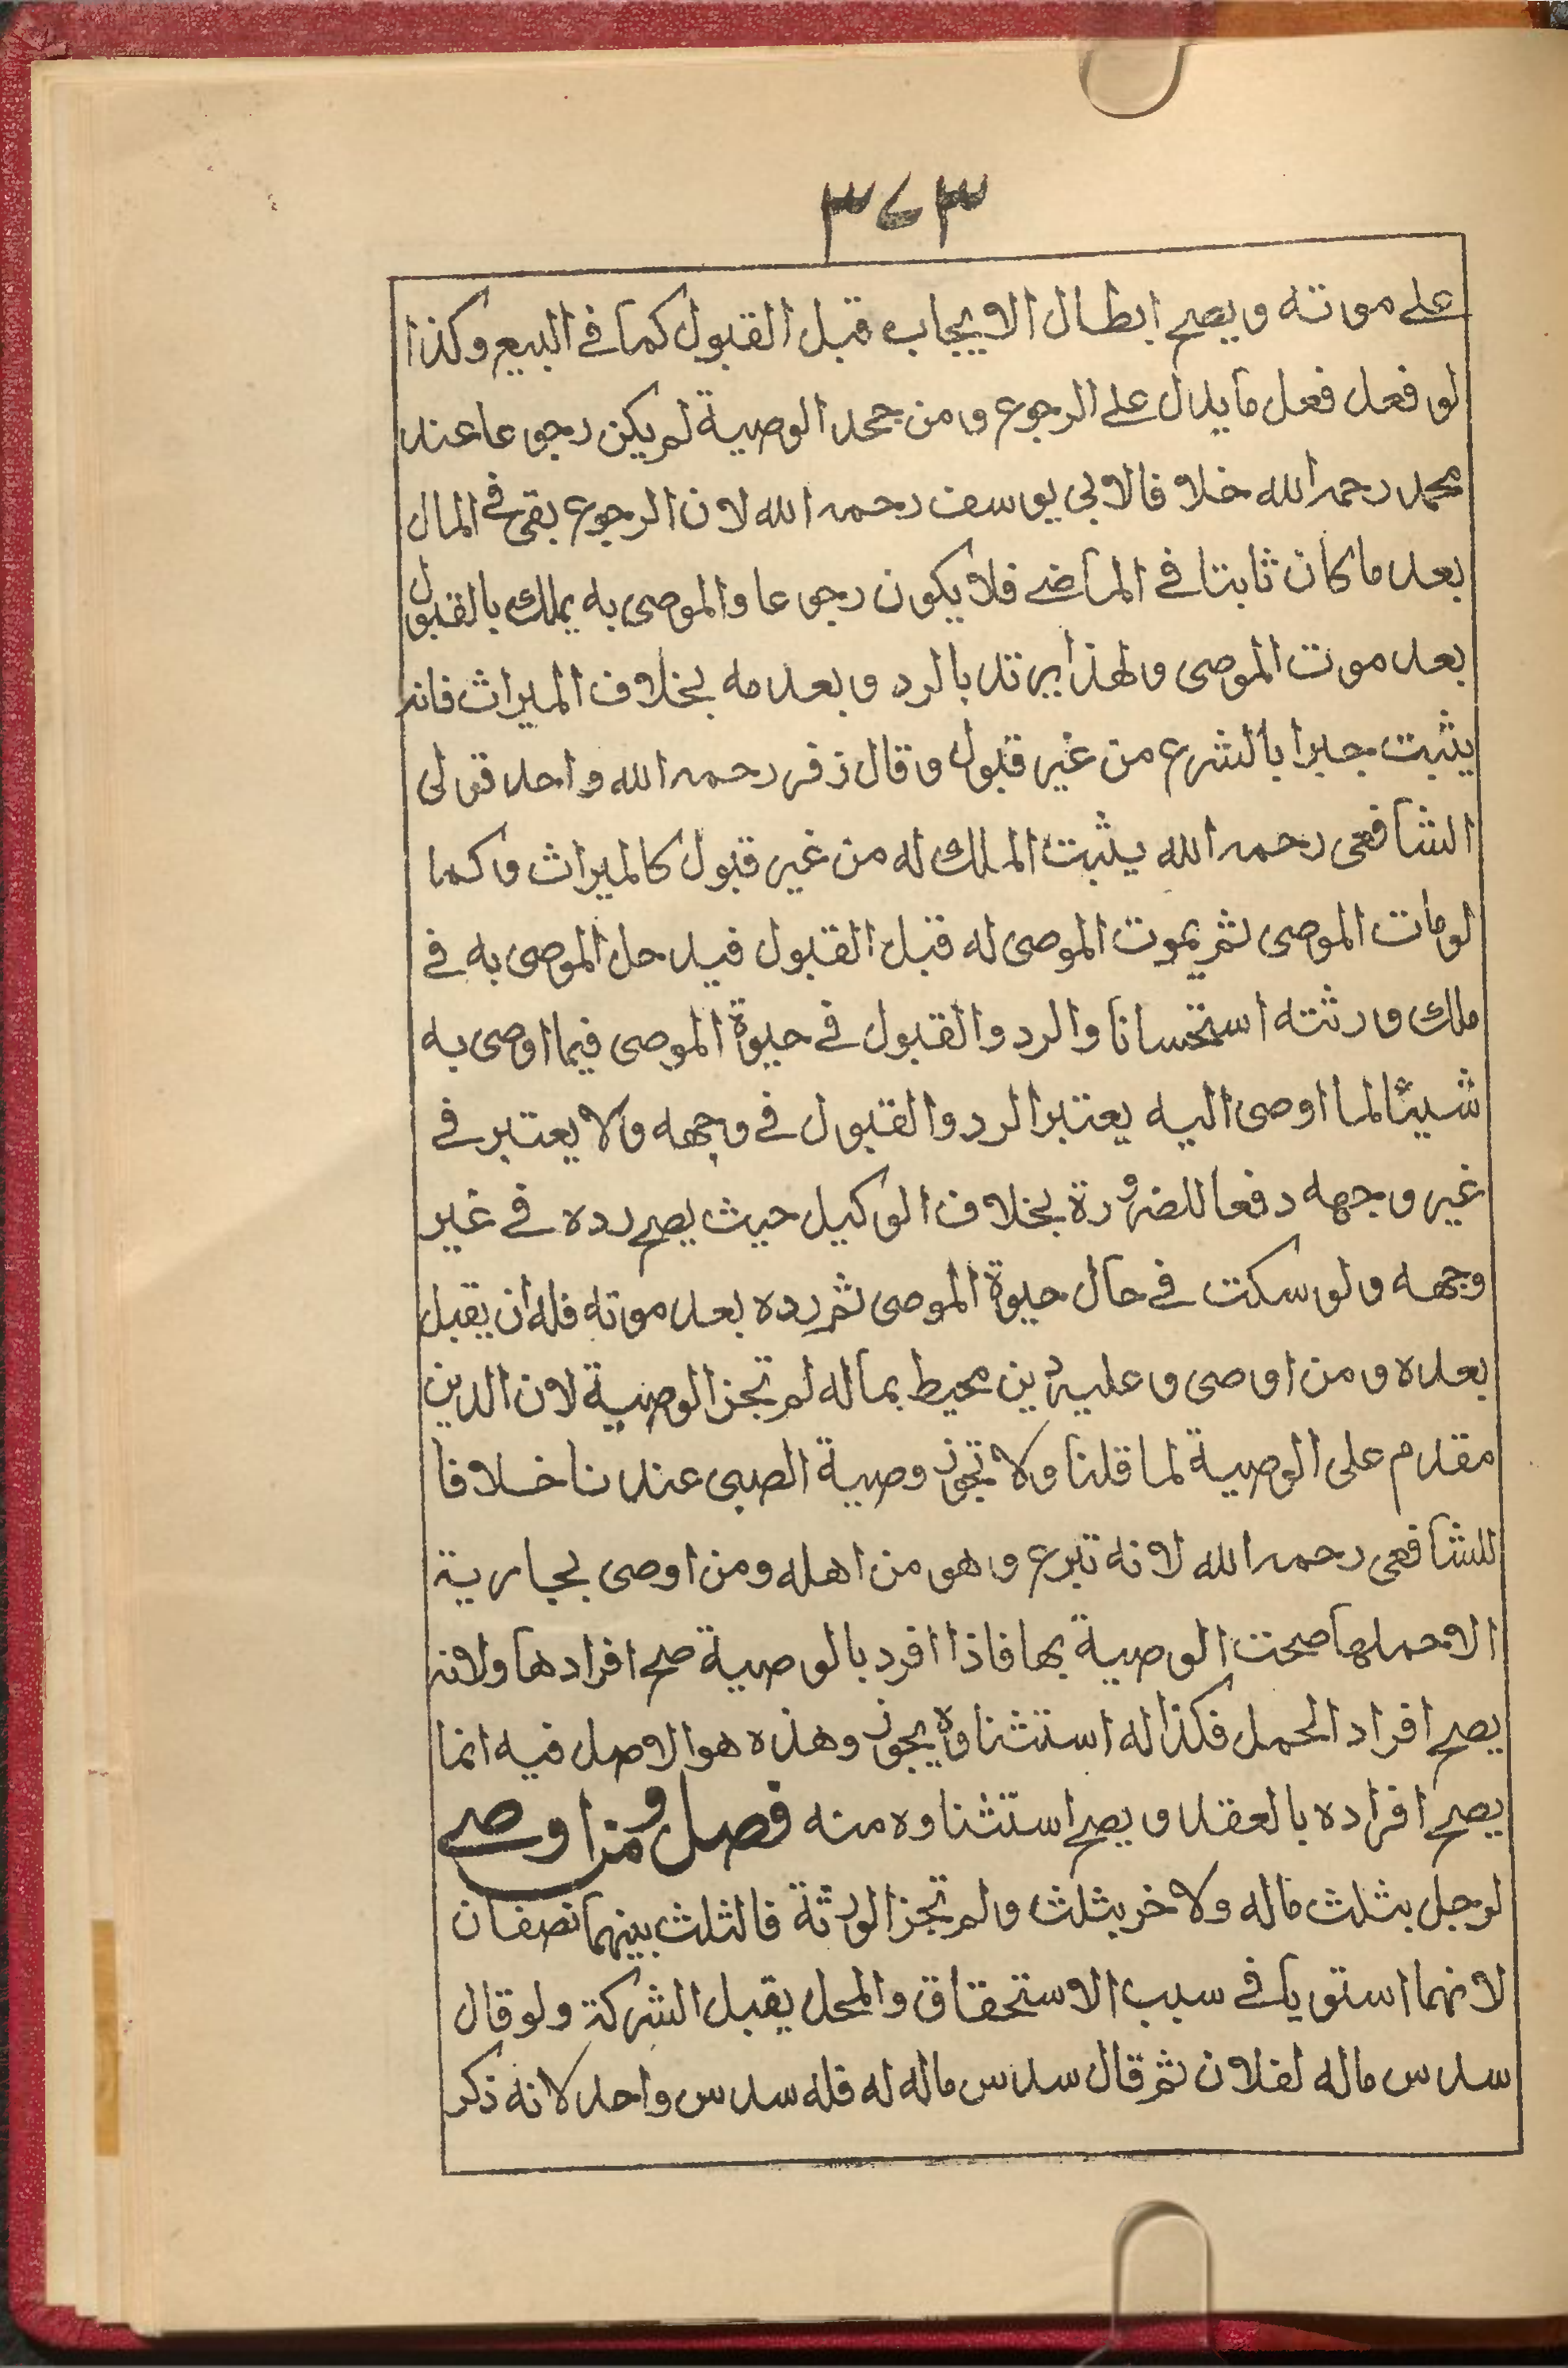 ٣٧٣
على موته ويصح ابطال الايجاب قبل القبول كما فى البيع وكذا
لو فعل فعل ما يدل على الرجوع ومن جحد الوصية لم يكن رجوعا عند
محمد رحمه الله خلافا لابى يوسف رحمه الله لان الرجوع بقى فى المال
بعد ما كان ثابتا فى الماضى فلا يكون رجوعا والموصى به يملك بالقبول
بعد موت الموصى ولهذا يرتد بالرد وبعدمه بخلاف الميراث فانه
يثبت جبرا بالشرع من غير قبول وقال زفر رحمه الله واحد قولى
الشافعى رحمه الله يثبت الملك له من غير قبول كالميراث وكما
لو مات الموصى ثم يموت الموصى له قبل القبول فيدخل الموصى به فى
ملك ورثته استحسانا والرد والقبول فى حيوة الموصى فيما اوصى به
شيئا لما اوصى اليه يعتبر الرد والقبول فى وجهه ولا يعتبر فى
غير وجهه دفعا للضرورة بخلاف الوكيل حيث يصح رده فى غير
وجهه ولو سكت فى حال حيوة الموصى ثم رده بعد موته فله ان يقبل
بعده ومن اوصى وعليه دين محيط بماله لم تجز الوصية لان الدين
مقدم على الوصية لما قلنا ولا تجوز وصية الصبى عندنا خلافا
للشافعى رحمه الله لانه تبرع وهو من اهله ومن اوصى بجارية
الا حملها صحت الوصية بها فاذا افرد بالوصية صح افرادها ولانه
يصح افراد الحمل فكذا له استثناوه يجوز وهذه هو الاصل فيه انما
يصح افراده بالعقد ويصح استثناوه منه فصل ومن اوصى
لرجل بثلث ماله ولاخر بثلث ولم تجز الورثة فالثلث بينهما نصفان
لانهما استويا فى سبب الاستحقاق والمحل يقبل الشركة ولو قال
سدس ماله لفلان ثم قال سدس ماله له فله سدس واحد لانه ذكر